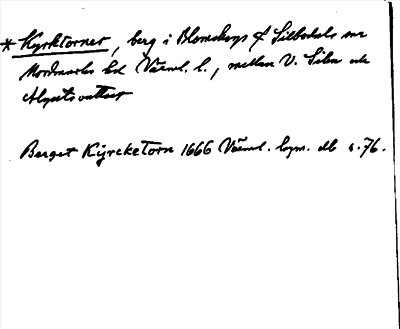 * Kyrktornet, berg i Blomskogs o Silbodals snr
Nordmarks hd Värml. l., mellan V. Silen och
Algutsvattnet
Berget Kyrcketorn 1666 Värml. lysn. db s. 76.